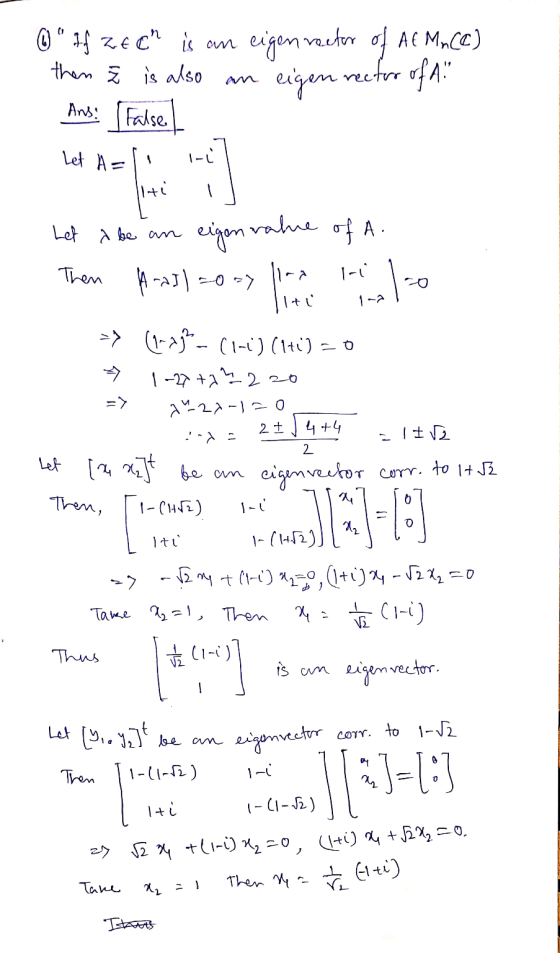 ⑥ "If z ∈ ℂⁿ is an eigenvector of A ∈ Mn(ℂ)
then z̄ is also an eigenvector of A."
Ans: False
Let A = [ 1 1-i
1+i 1 ]
Let λ be an eigenvalue of A.
Then |A-λI| = 0 => | 1-λ 1-i
1+i 1-λ | = 0
=> (1-λ)² - (1-i)(1+i) = 0
=> 1-2λ+λ²-2 = 0
=> λ²-2λ-1 = 0
∴ λ = (2 ± √(4+4))/2 = 1 ± √2
Let [x₁ x₂]ᵗ be an eigenvector corr. to 1+√2
Then, [ 1-(1+√2) 1-i
1+i 1-(1+√2) ] [ x₁
x₂ ] = [ 0
0 ]
=> -√2 x₁ + (1-i) x₂ = 0, (1+i) x₁ - √2 x₂ = 0
Take x₂ = 1, Then x₁ = 1/√2 (1-i)
Thus [ 1/√2 (1-i)
1 ] is an eigenvector.
Let [y₁, y₂]ᵗ be an eigenvector corr. to 1-√2
Then [ 1-(1-√2) 1-i
1+i 1-(1-√2) ] [ x₁
x₂ ] = [ 0
0 ]
=> √2 x₁ + (1-i) x₂ = 0, (1+i) x₁ + √2 x₂ = 0.
Take x₂ = 1 Then x₁ = 1/√2 (-1+i)